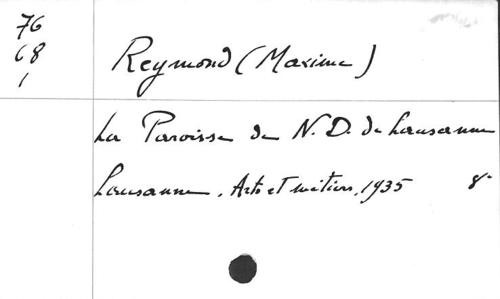 76
68
1
Reymond (Maxime)
La Paroisse de N. D. de Lausanne
Lausanne, Arts et métiers, 1935 8°